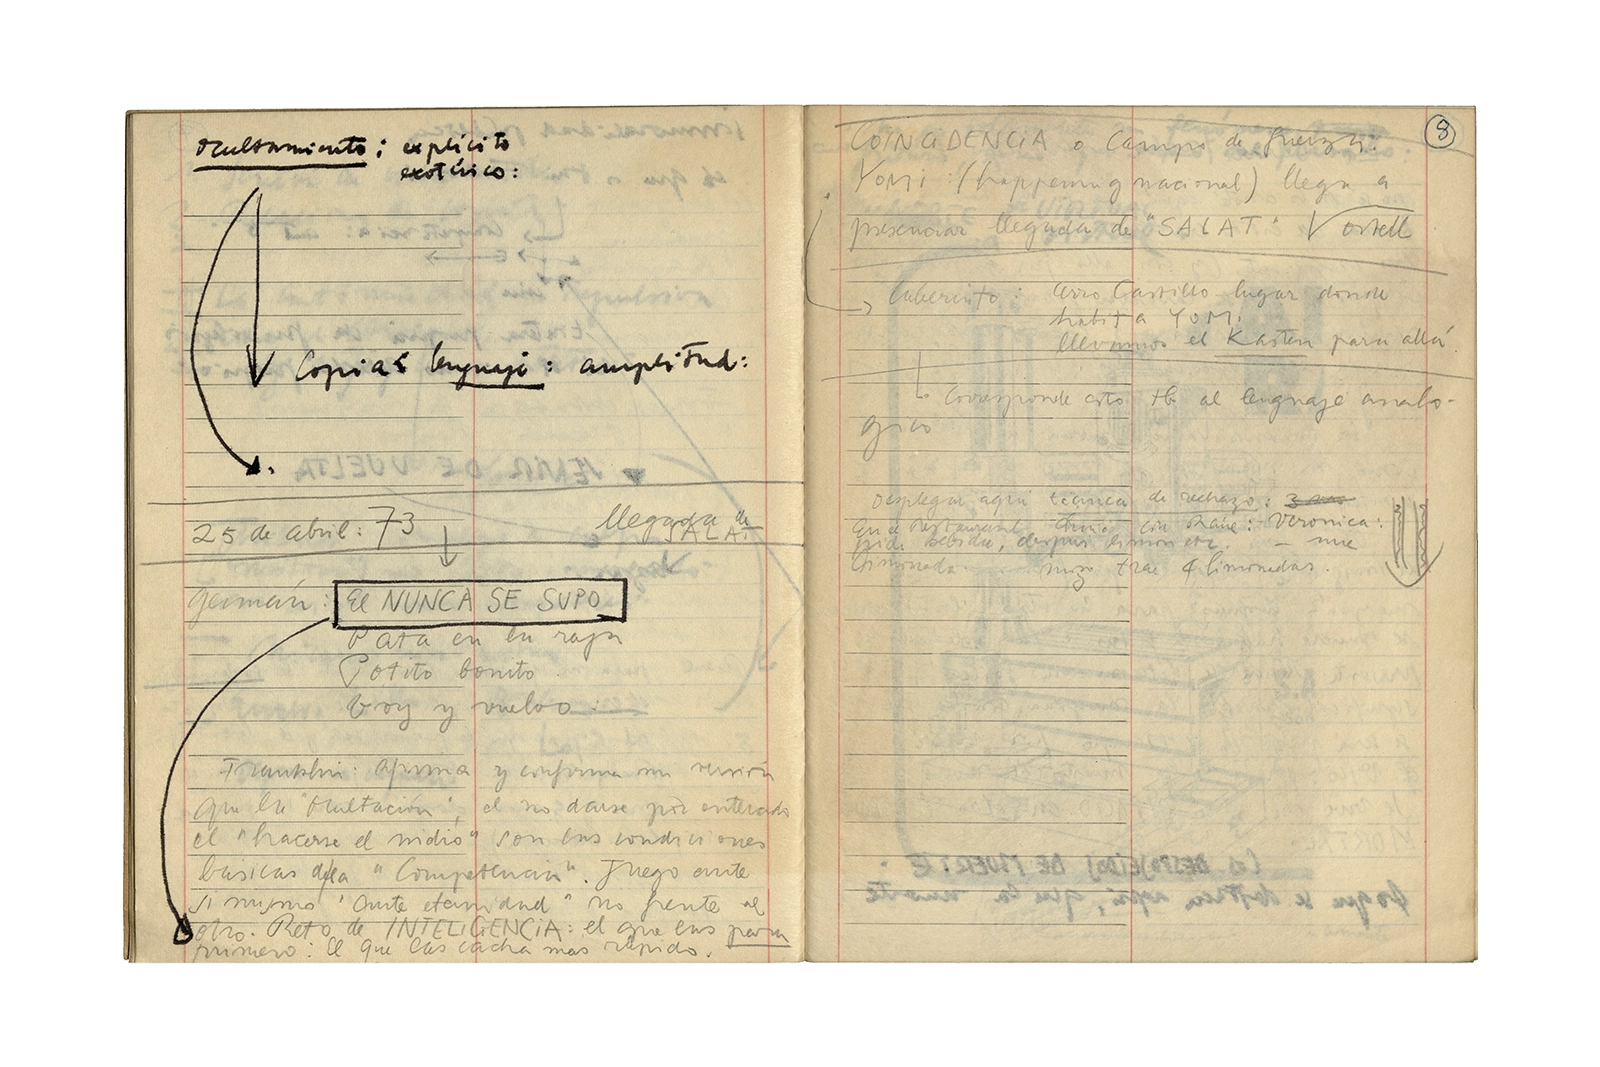 Ocultamiento: explícito
exotérico:
Copias lenguaje: amplitud:
25 de abril: 73
llegada de
SALAT
Germán: El NUNCA SE SUPO
Pata en la raja
Potito bonito.
Voy y vuelvo.
Franklin: afirma y confirma mi versión
que la "Ocultación", el no darse por enterado
el "hacerse el
son las condiciones
básicas de la "Competencia". Juego ante
si mismo "Ante eternidad" no frente al
otro. Reto de INTELIGENCIA: el que las para
primero: el que las cacha mas rápido.
8
COINCIDENCIA o Campo de fuerza:
YOMI: (happening nacional) llega a
presenciar llegada de "SALAT" Vostell
Laberinto: Cerro Castillo lugar donde
habita YOMI
llevamos el Kasten para allá.
Corresponde esto tb al lenguaje análo-
gico
Desplegar aquí técnica de rechazo:
En el restaurant
con
Verónica:
pide bebida, después limón etc. - me
limonada
mozo trae 4 limonadas.